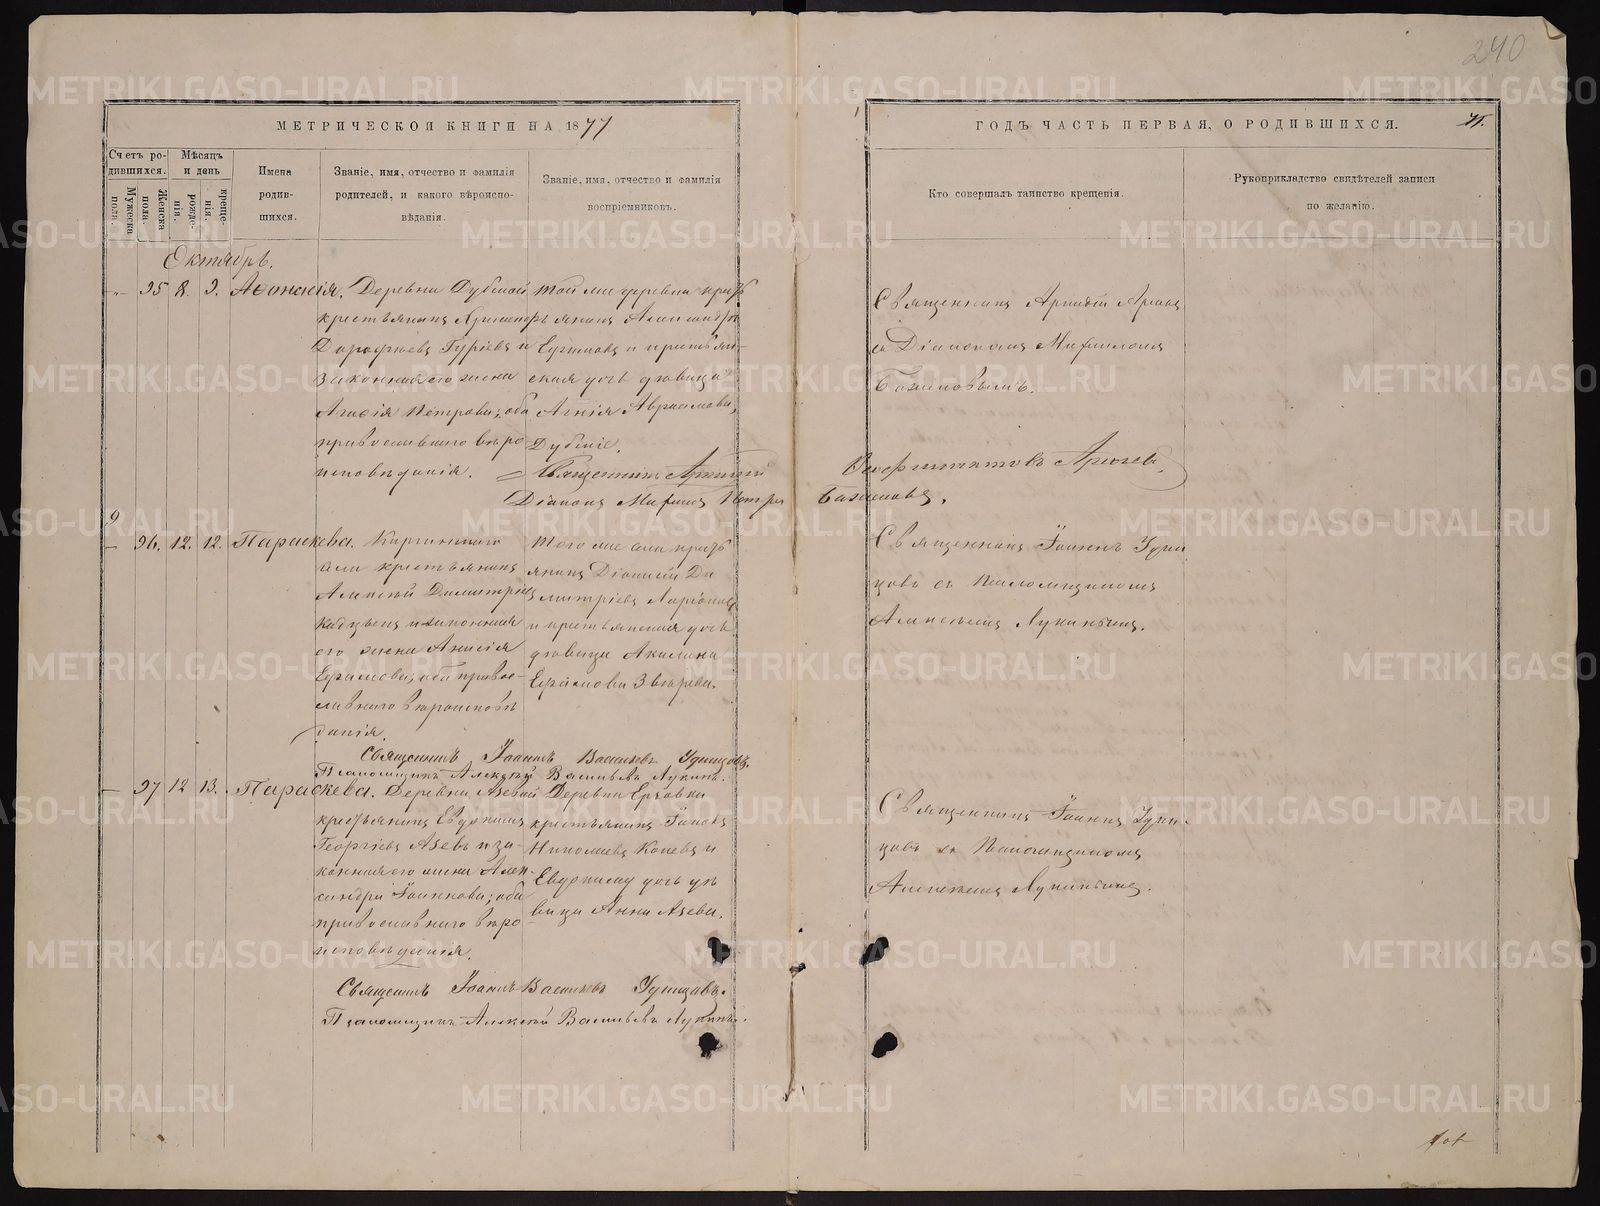 240
МЕТРИЧЕСКОЙ КНИГИ НА 1877
ГОДЪ ЧАСТЬ ПЕРВАЯ, О РОДИВШИХСЯ.
Счетъ ро-
дившихся.
Мужеска
пола
Женска
пола
Мѣсяцъ
и день
рожде-
нія.
креще-
нія.
Имена
родив-
шихся.
Званіе, имя, отчество и фамилія
родителей, и какого вѣроиспо-
вѣданія.
Званіе, имя, отчество и фамилія
воспріемниковъ.
Кто совершалъ таинство крещенія.
Рукоприкладство свидѣтелей записи
по желанію.
Октябрь.
95 8. 9.
Деревни Дубской
крестьянинъ
Дорофѣевъ Гуріевъ и
законная его жена
Петрова; оба
православнаго вѣро
исповѣданія.
той же деревни кресть
янинъ
и крестьян-
ская дочь дѣвица
Агнія Авраамова
Священникъ
Діаконъ
Священникъ
съ Діакономъ
Баженовымъ.
Баженовъ.
96. 12. 12. Параскева. Киргинскаго
села крестьянинъ
Алексій Димитріевъ
и законная
его жена Анисія
Ефимова, оба правос-
лавнаго вѣроисповѣ
данія.
Того же села кресть
янинъ Діонисій Ди
митріевъ Ларіоновъ
и крестьянская дочь
дѣвица Акилина
Ефимова Звѣрева.
Священникъ Іоаннъ Удин
цовъ съ Псаломщикомъ
Алексѣемъ Лукинымъ.
Священникъ Іоаннъ Васильевъ Удинцовъ.
Псаломщикъ Алексѣй Васильевъ Лукинъ.
97 12 13. Параскева. Деревни Азевой
крестьянинъ Евдокимъ
Георгіевъ Азевъ и за-
конная его жена Алек-
сандра Іоаннова; оба
православнаго вѣро
исповѣданія.
Деревни Ерзовки
крестьянинъ Іаковъ
Николаевъ Коневъ и
Евдокима дочь дѣ
вица Анна Азева.
Священникъ Іоаннъ Удин-
цовъ съ Псаломщикомъ
Алексѣемъ Лукинымъ.
Священникъ Іоаннъ Васильевъ Удинцовъ.
Псаломщикъ Алексѣй Васильевъ Лукинъ.
METRIKI.GASO-URAL.RU